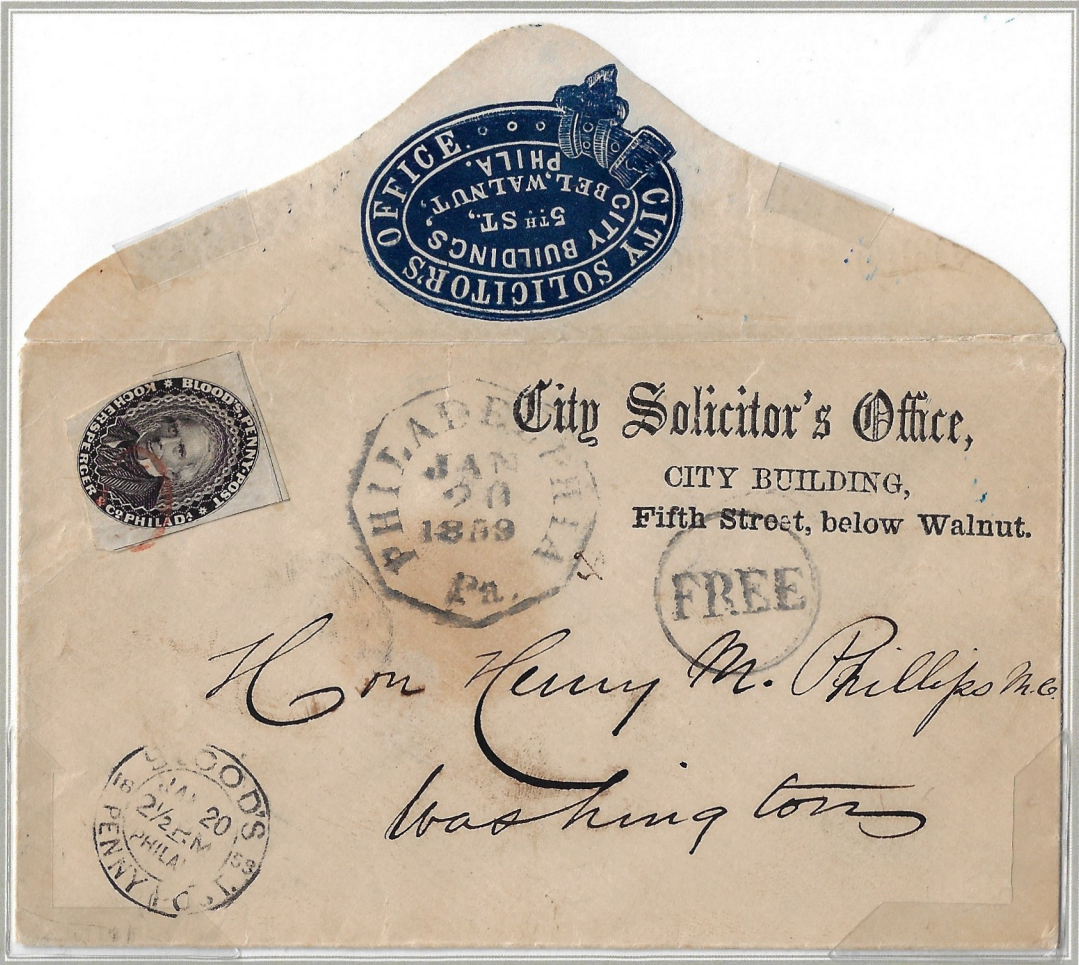 CITY SOLICITOR'S OFFICE.
CITY BUILDINGS,
5TH ST.,
BEL, WALNUT,
PHILA.
BLOOD'S PENNY-POST
KOCHERSPERGER & CO. PHILADA
PHILADELPHIA
JAN
20
1859
Pa.
City Solicitor's Office,
CITY BUILDING,
Fifth Street, below Walnut.
FREE
Hon Henry M. Phillips M.C.
Washington
BLOOD'S
JAN 20
18 59
2½ P.M
PHILA
PENNY POST